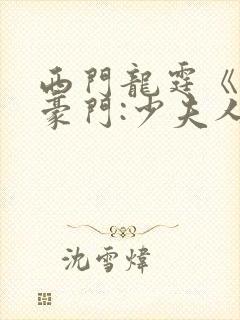 西門龍霆《
豪門:少夫人
沈雪煒